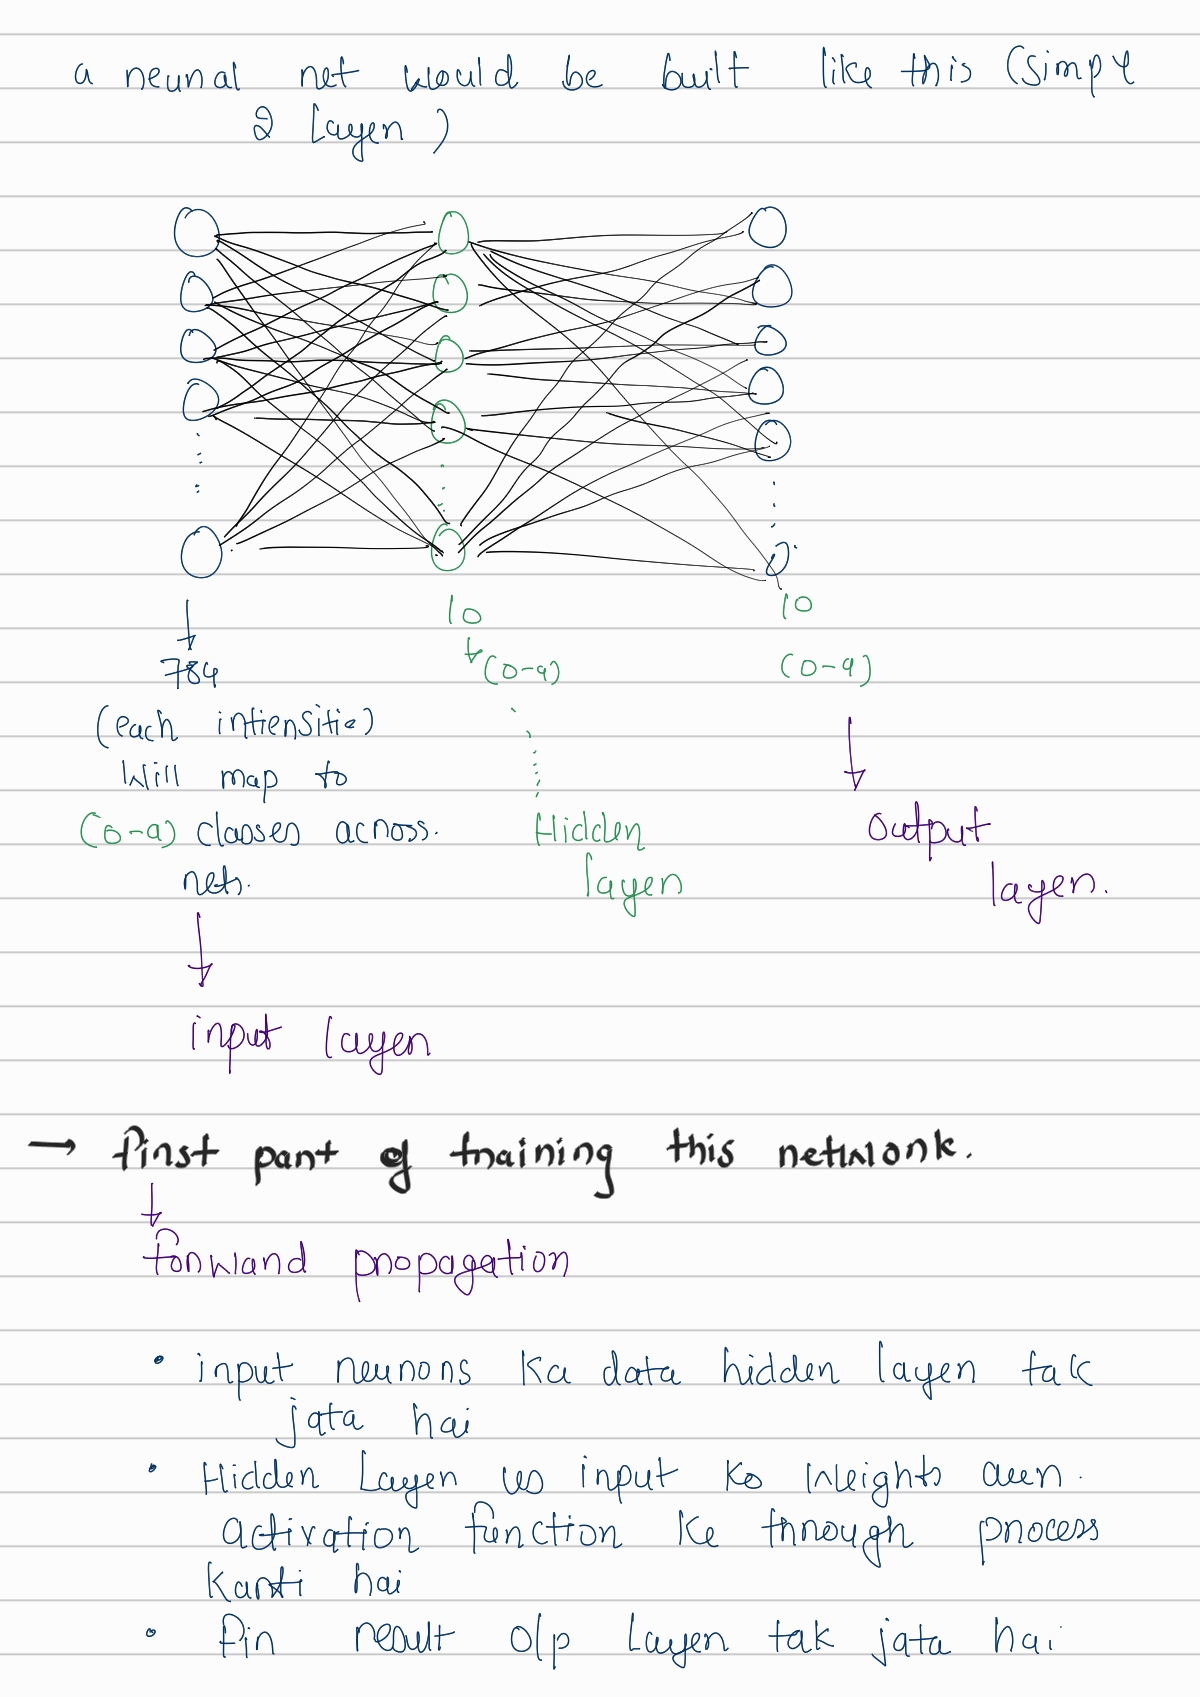 a neural net would be built like this (simple
2 layer)
10
10
784
(0-9)
(0-9)
(each intiensitie)
will map to
(0-9) classes across
nets.
Hidden
layer
output
layer.
input layer
→ first part of training this network.
forward propagation
• input neurons ka data hidden layer tak
jata hai
• Hidden Layer us input ko weights aur
activation function ke through process
karti hai
• fir result o/p Layer tak jata hai